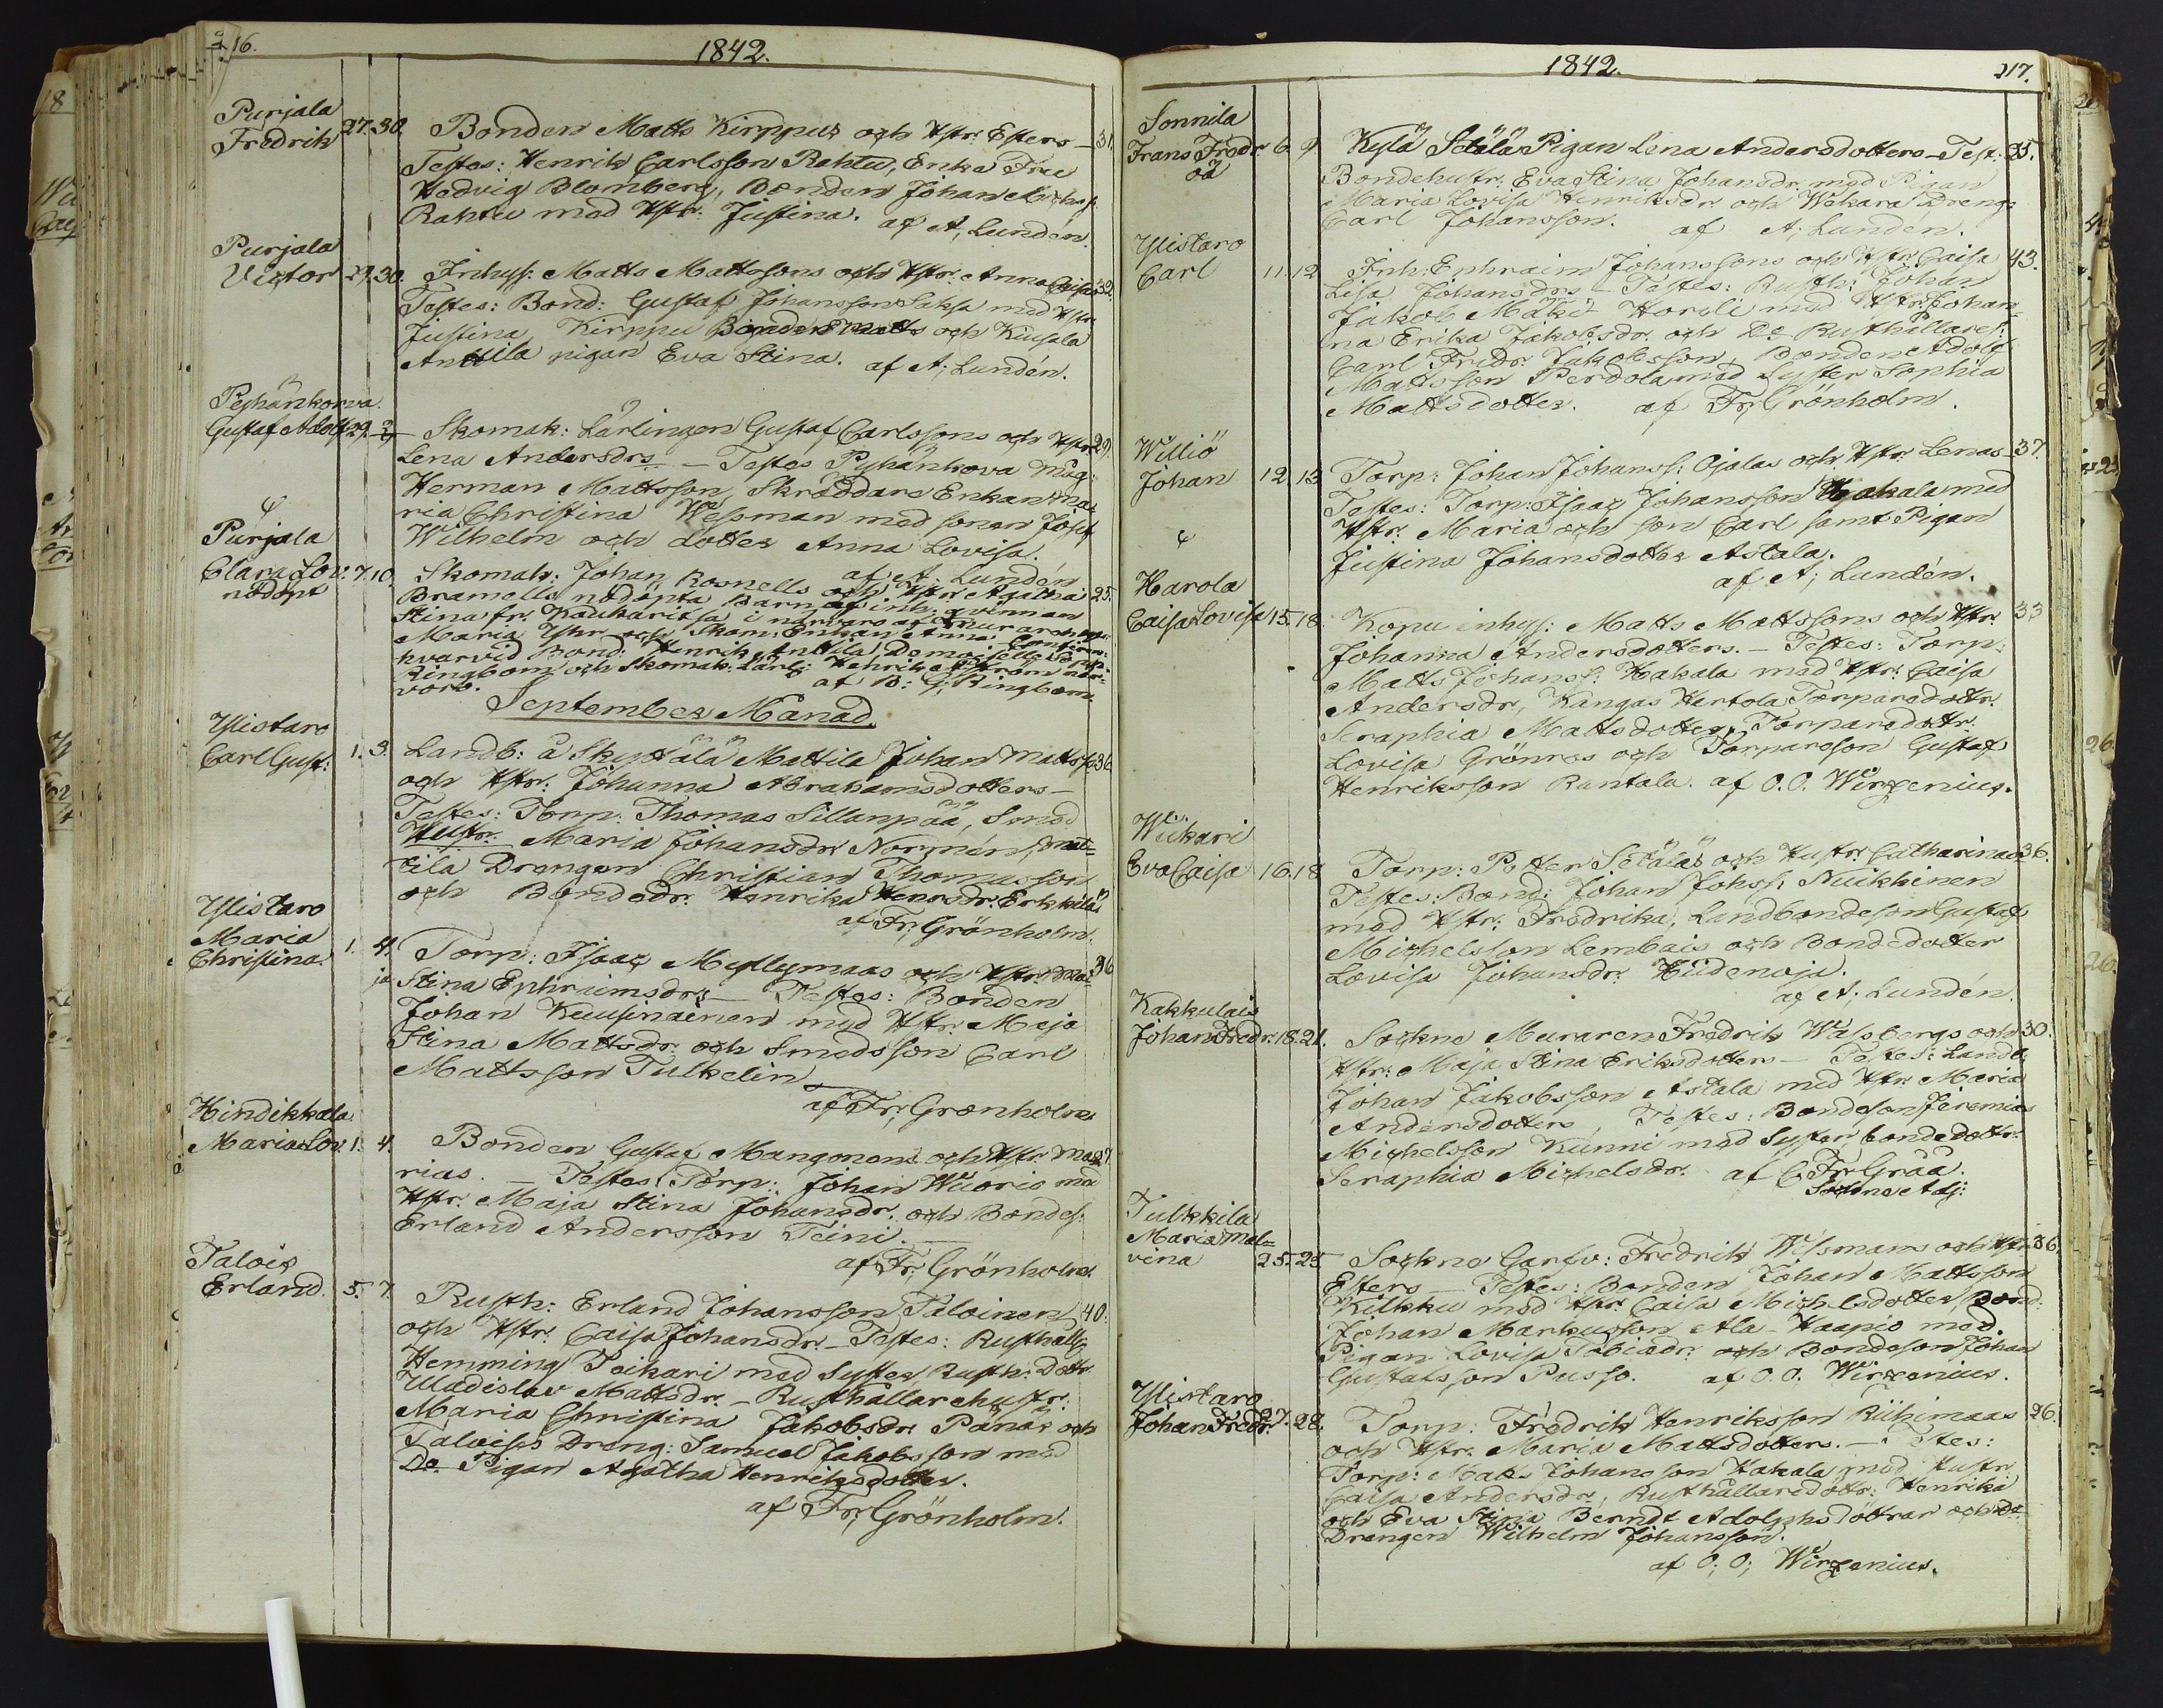 216.
1842.
Purjala
Fredrik 27. 30. Bonden Matts Kirppus och Hstr. Esters — 31.
Testes: Henrik Carlsson Rahtu, Enke Fru
Hedvig Blomberg, Bonden Johan Michelss.
Rahtu med Hstr: Justina. af A; Lundén.
Purjala
Victor 29. 30. Inhys: Matts Mattssons och Hstr. Anna Caisas 32.
Testes: Bond: Gustaf Johansson Suksa med Hstr
Justina Kirppu Bonden Matts och Kiusala
Anttila pigan Eva Stina. af A; Lundén.
Pyhänkorva
Gustaf Adolf 29. Skomak: Lärlingen Gustaf Carlssons och Hstr. 29.
Lena Andersdrs — Testes Pyhänkova Måg:
Herman Mattsson, Skräddare Enkan Ma-
ria Christina Wessman med sonen Josef
Wilhelm och dotter Anna Lovisa.
af A; Lundén
Purjala
Clara Lov: 7. 10. Skomak: Johan Rosnells och Hstr Agatha 25.
nödöpt Bramells nödöpta Barn af inh. qvinnan
Stina fr. Kauharitsa i närvaro af Murare
Maria Hstr. och Skom: Enkan Anna
hvarvid Bond: Henrik Anttila, Demoiselle
Ringbom och Skomak: Lärl: Henrik när-
voro. af B: G; Ringbom.
September Månad.
Ylistaro
Carl Gust: 1. 3. Landb: å Skyttälä Mattila Johan Mattss. 36
och Hstr: Johanna Abrahamsdotters —
Testes: Torp: Thomas Sillanpää, Smed
Hustr. Maria Johansdr Normén, Mat-
tila Drengen Christian Thomasson
och Bondedr. Henrika Henrsdr. Erkkilä
af Fr; Grönholm.
Ylistaro
Maria
Christina. 1. 4. Torp: Isaac Myllymaas och Hstr. Ma- 36
ja Stina Ephraimsdrs — Testes: Bonden
Johan Kuusinainen med Hstr Maja
Stina Mattsdr. och Smedsson Carl
Mattsson Tulkelin
af Fr; Grönholm
Hindikkala
Maria Lov. 1. 4. Bonden Gustaf Mangonens och Hstr Ma- 27.
rias. — Testes Torp: Johan Wuorio med
Hstr. Maja Stina Johansdr. och Bondes:
Erland Andersson Teini. —
af Fr; Grönholm.
Talois
Erland. 5. 7 Rusth: Erland Johansson Taloinen 40.
och Hstr. Caisa Johansdr. — Testes: Rusthåll:
Hemming Teikari med Syster Rusth: Dottr
Uladislav Mattsdr. — Rusthållarehustr:
Maria Christina Jakobsdr Pänäs och
Talois Dreng: Samuel Jakobsson med
Do. Pigan Agatha Henriksdotter.
af Fr; Grönholm.
1842.
217.
Sonnila
Frans Fredr. 6. 9. Kylä Sälä Pigan Lena Andersdotters — Test: 25.
oä
Bondehustr. Eva Stina Johansdr. med Pigan
Maria Lovisa Henriksdr och Wakara Drengs
Carl Johansson. af A; Lundén.
Ylistaro
Carl 11. 12. Inh: Ephraim Johanssons och Hstr. Caisa 43.
Lisa Johansdrs — Testes: Rusth: Johan
Jakob Mäki Horeli med Hstr. Johan-
na Erika Jakobsdr. och Do Rusthållares.
Carl Fredr. Jakobsson, Bonden Adolf
Mattsson Perdola med Syster Sophia
Mattsdotter. af Fr; Grönholm.
Williö
Johan 12. 13 Torp: Johan Johanss: Ojalas och Hstr: Lenas 37.
Testes: Torp: Isaac Johansson Hakala med
Hstr. Maria och son Carl samt Pigan
Justina Johansdotter Astala.
af A; Lundén.
Harola
Caisa Lovisa 15. 18. Kopu inhys: Matts Mattssons och Hstr. 33
Johanna Andersdotters. — Testes: Torp:
Matts Johanss: Hakala med Hstr: Caisa
Andersdr, Kangas Hertola Torparedottr.
Seraphia Mattsdotter, Torparedottr.
Lovisa Grönroos och Torpareson Gustaf
Henriksson Rantala. af O. O. Wirzenius.
Wiikari
Eva Caisa 16. 18 Torp: Petter Sätäläs och Hustr. Catharinas 36.
Testes: Bond: Johan Johss: Nuikkinen
med Hstr. Fredrika, Landbondeson Gustaf
Michelsson Lembais och Bondedotter
Lovisa Johansdr. Hiidenoja.
af A; Lundén.
Kakkulais
Johan Fredr. 18. 21. Sockne Muraren Fredrik Walbergs och 30.
Hstr: Maja Stina Eriksdotters — Testes: Landb.
Johan Jakobsson Astala med Hstr. Maria
Andersdotter, Testes: Bondeson Jeremias
Michelsson Kunni med Syster bondedottr.
Seraphia Michelsdr. af C. Fr: Grää.
Sockne Adj:
Tulkkila
Maria Mal-
vina 25. 25. Sockne Garfv: Fredrik Wesmans och Hstr 36.
Esters — Testes: Bonden Johan Mattsson
Kilkku med Hstr Caisa Michelsdotter, Bond:
Johan Markusson Ala-Haapio med
Pigan Lovisa Tobiasdr och Bondeson Johan
Gustafsson Pusso. af O. O. Wirzenius.
Ylistaro
Johan Fredr. 27. 28. Torp: Fredrik Henriksson Riihimaas 26.
och Hstr. Maria Mattsdotters. — Testes:
Torp: Matts Johansson Hakala med Hustr
Caisa Andersdr, Rusthållaredöttr: Henrika
och Eva Stina Berndt Adolphs döttrar och do
Drengen Wilhelm Johansson.
af O; O; Wirzenius.